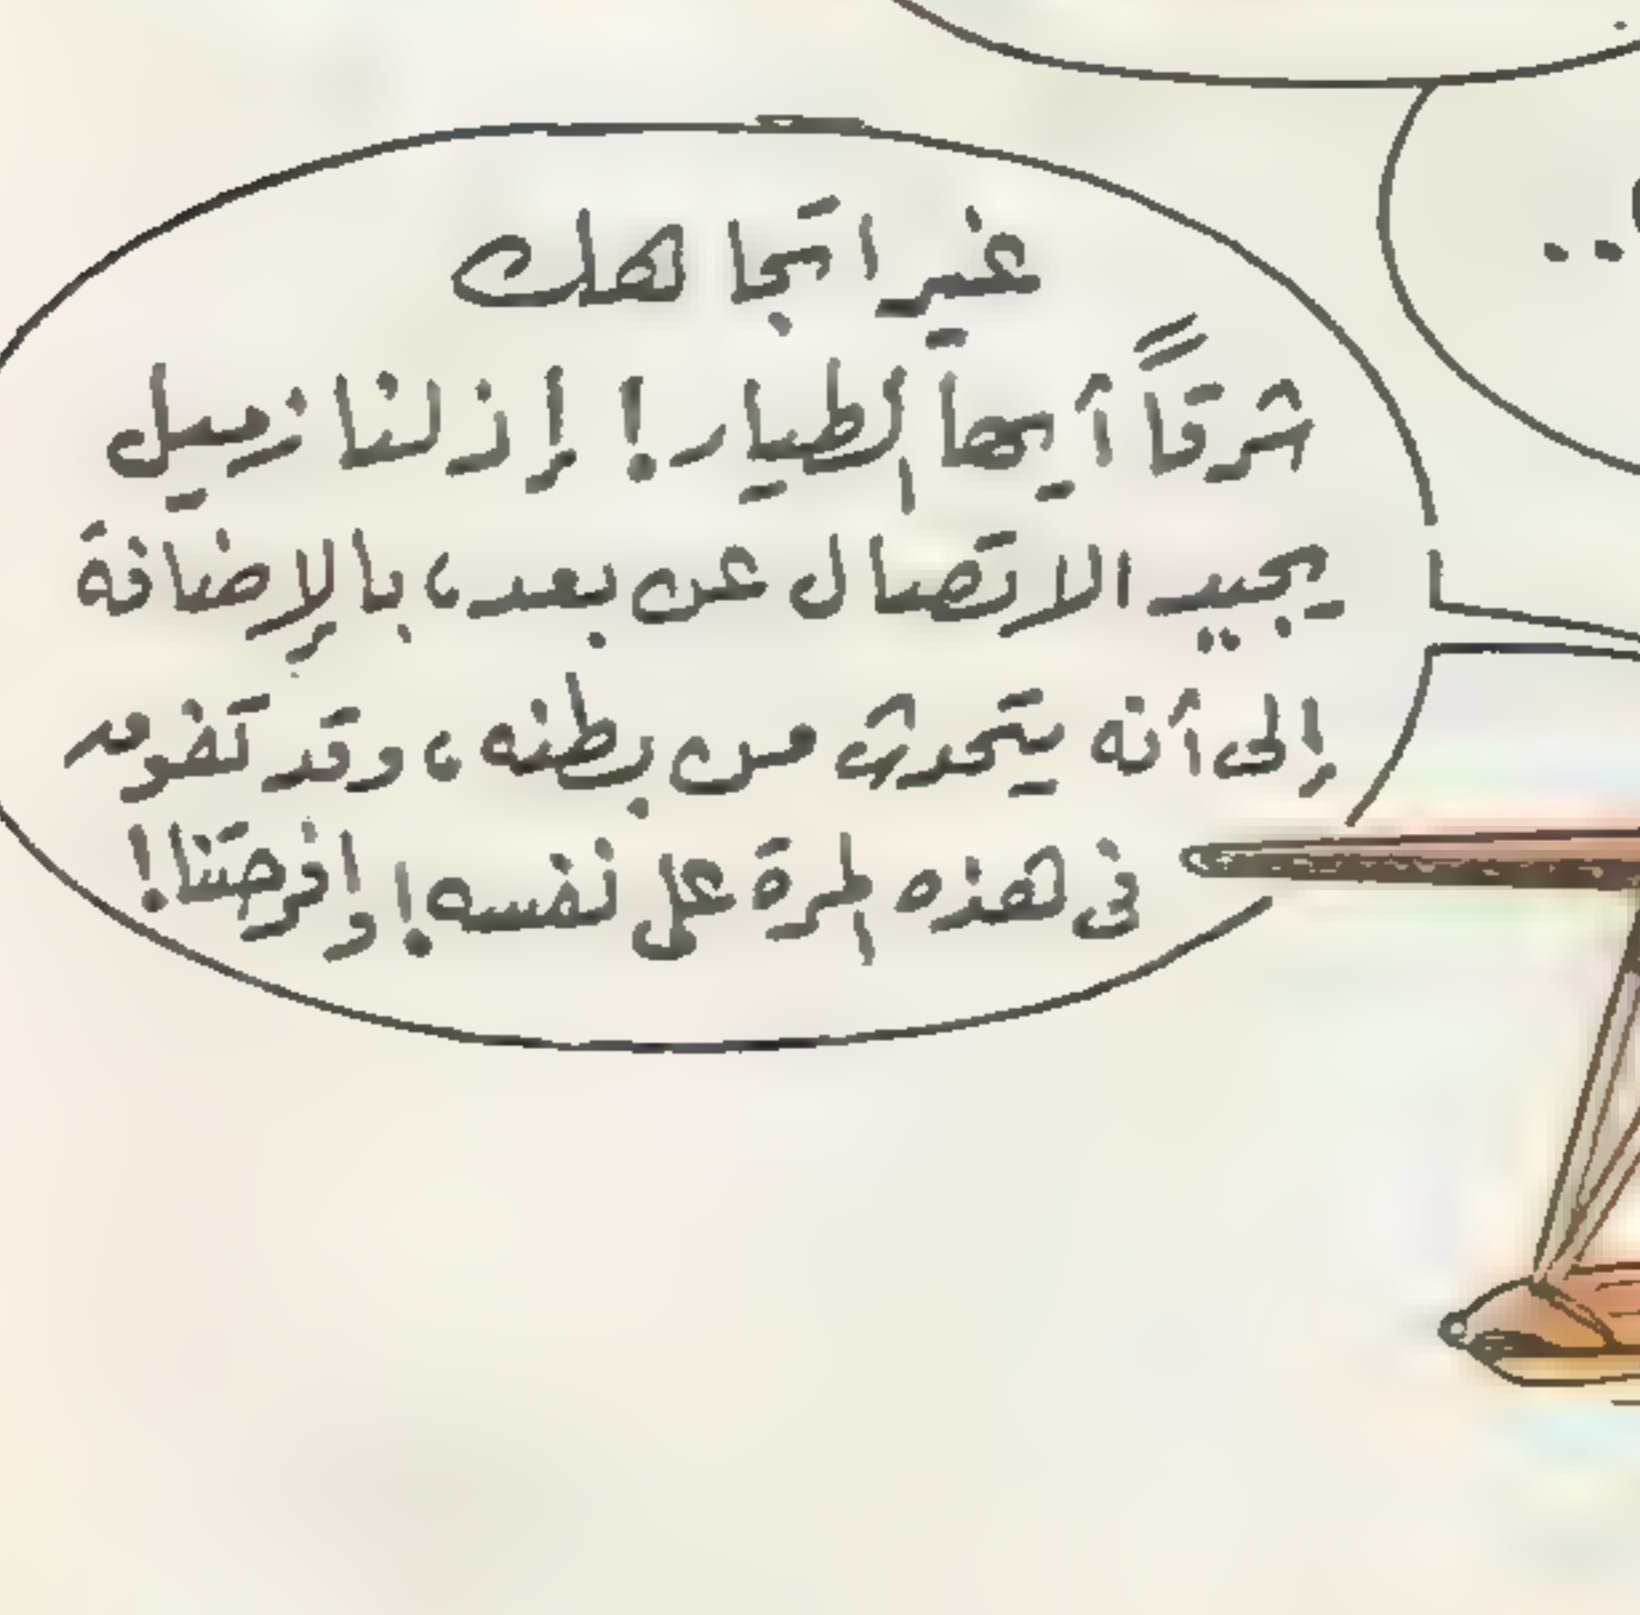 غير اتجاهك
شرقاً أيها الطيار! إذ لنا زميل
يجيد الاتصال عن بعد، بالإضافة
إلى أنه يتحدث من بطنه، وقد تفوق
في هذه المرة على نفسه! وا فرحتنا!